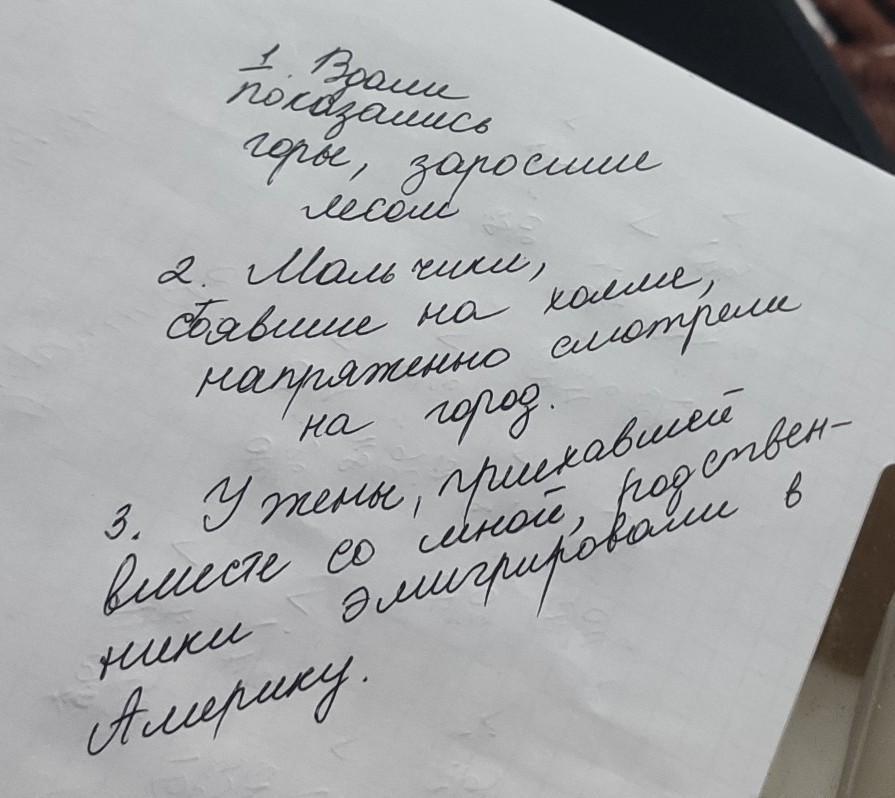 1. Вдали
показались
горы, заросшие
лесом
2. Мальчики,
стоявшие на холме,
напряженно смотрели
на город.
3. У жены, приехавшей
вместе со мной, родствен-
ники эмигрировали в
Америку.